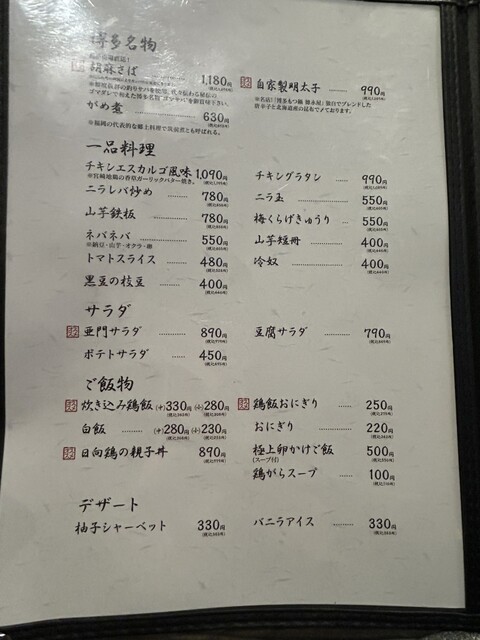 博多名物
胡麻さば ...... 1,180円
自家製明太子 ―― 990円
がめ煮 ............ 630円
※福岡の代表的な郷土料理で筑前煮とも呼ばれる。
一品料理
チキンエスカルゴ風味 1,090円
※宮崎地鶏の香草ガーリックバター焼き。
チキングラタン ...... 990円
ニラレバ炒め ...... 780円
ニラ玉 ............ 550円
山芋鉄板 ......... 780円
梅くらげきゅうり ... 550円
ネバネバ ............ 550円
※納豆・山芋・オクラ・卵
山芋短冊 ......... 400円
トマトスライス ...... 480円
冷奴 ............ 400円
黒豆の枝豆 ...... 400円
サラダ
亜門サラダ ......... 890円
豆腐サラダ ......... 790円
ポテトサラダ ...... 450円
ご飯物
炊き込み鶏飯 (中)330円 (小)280円
鶏飯おにぎり ...... 250円
白飯 ......... (中)280円 (小)230円
おにぎり ......... 220円
日向鶏の親子丼 890円
極上卵かけご飯 500円
(スープ付)
鶏がらスープ ...... 100円
デザート
柚子シャーベット 330円
バニラアイス ...... 330円